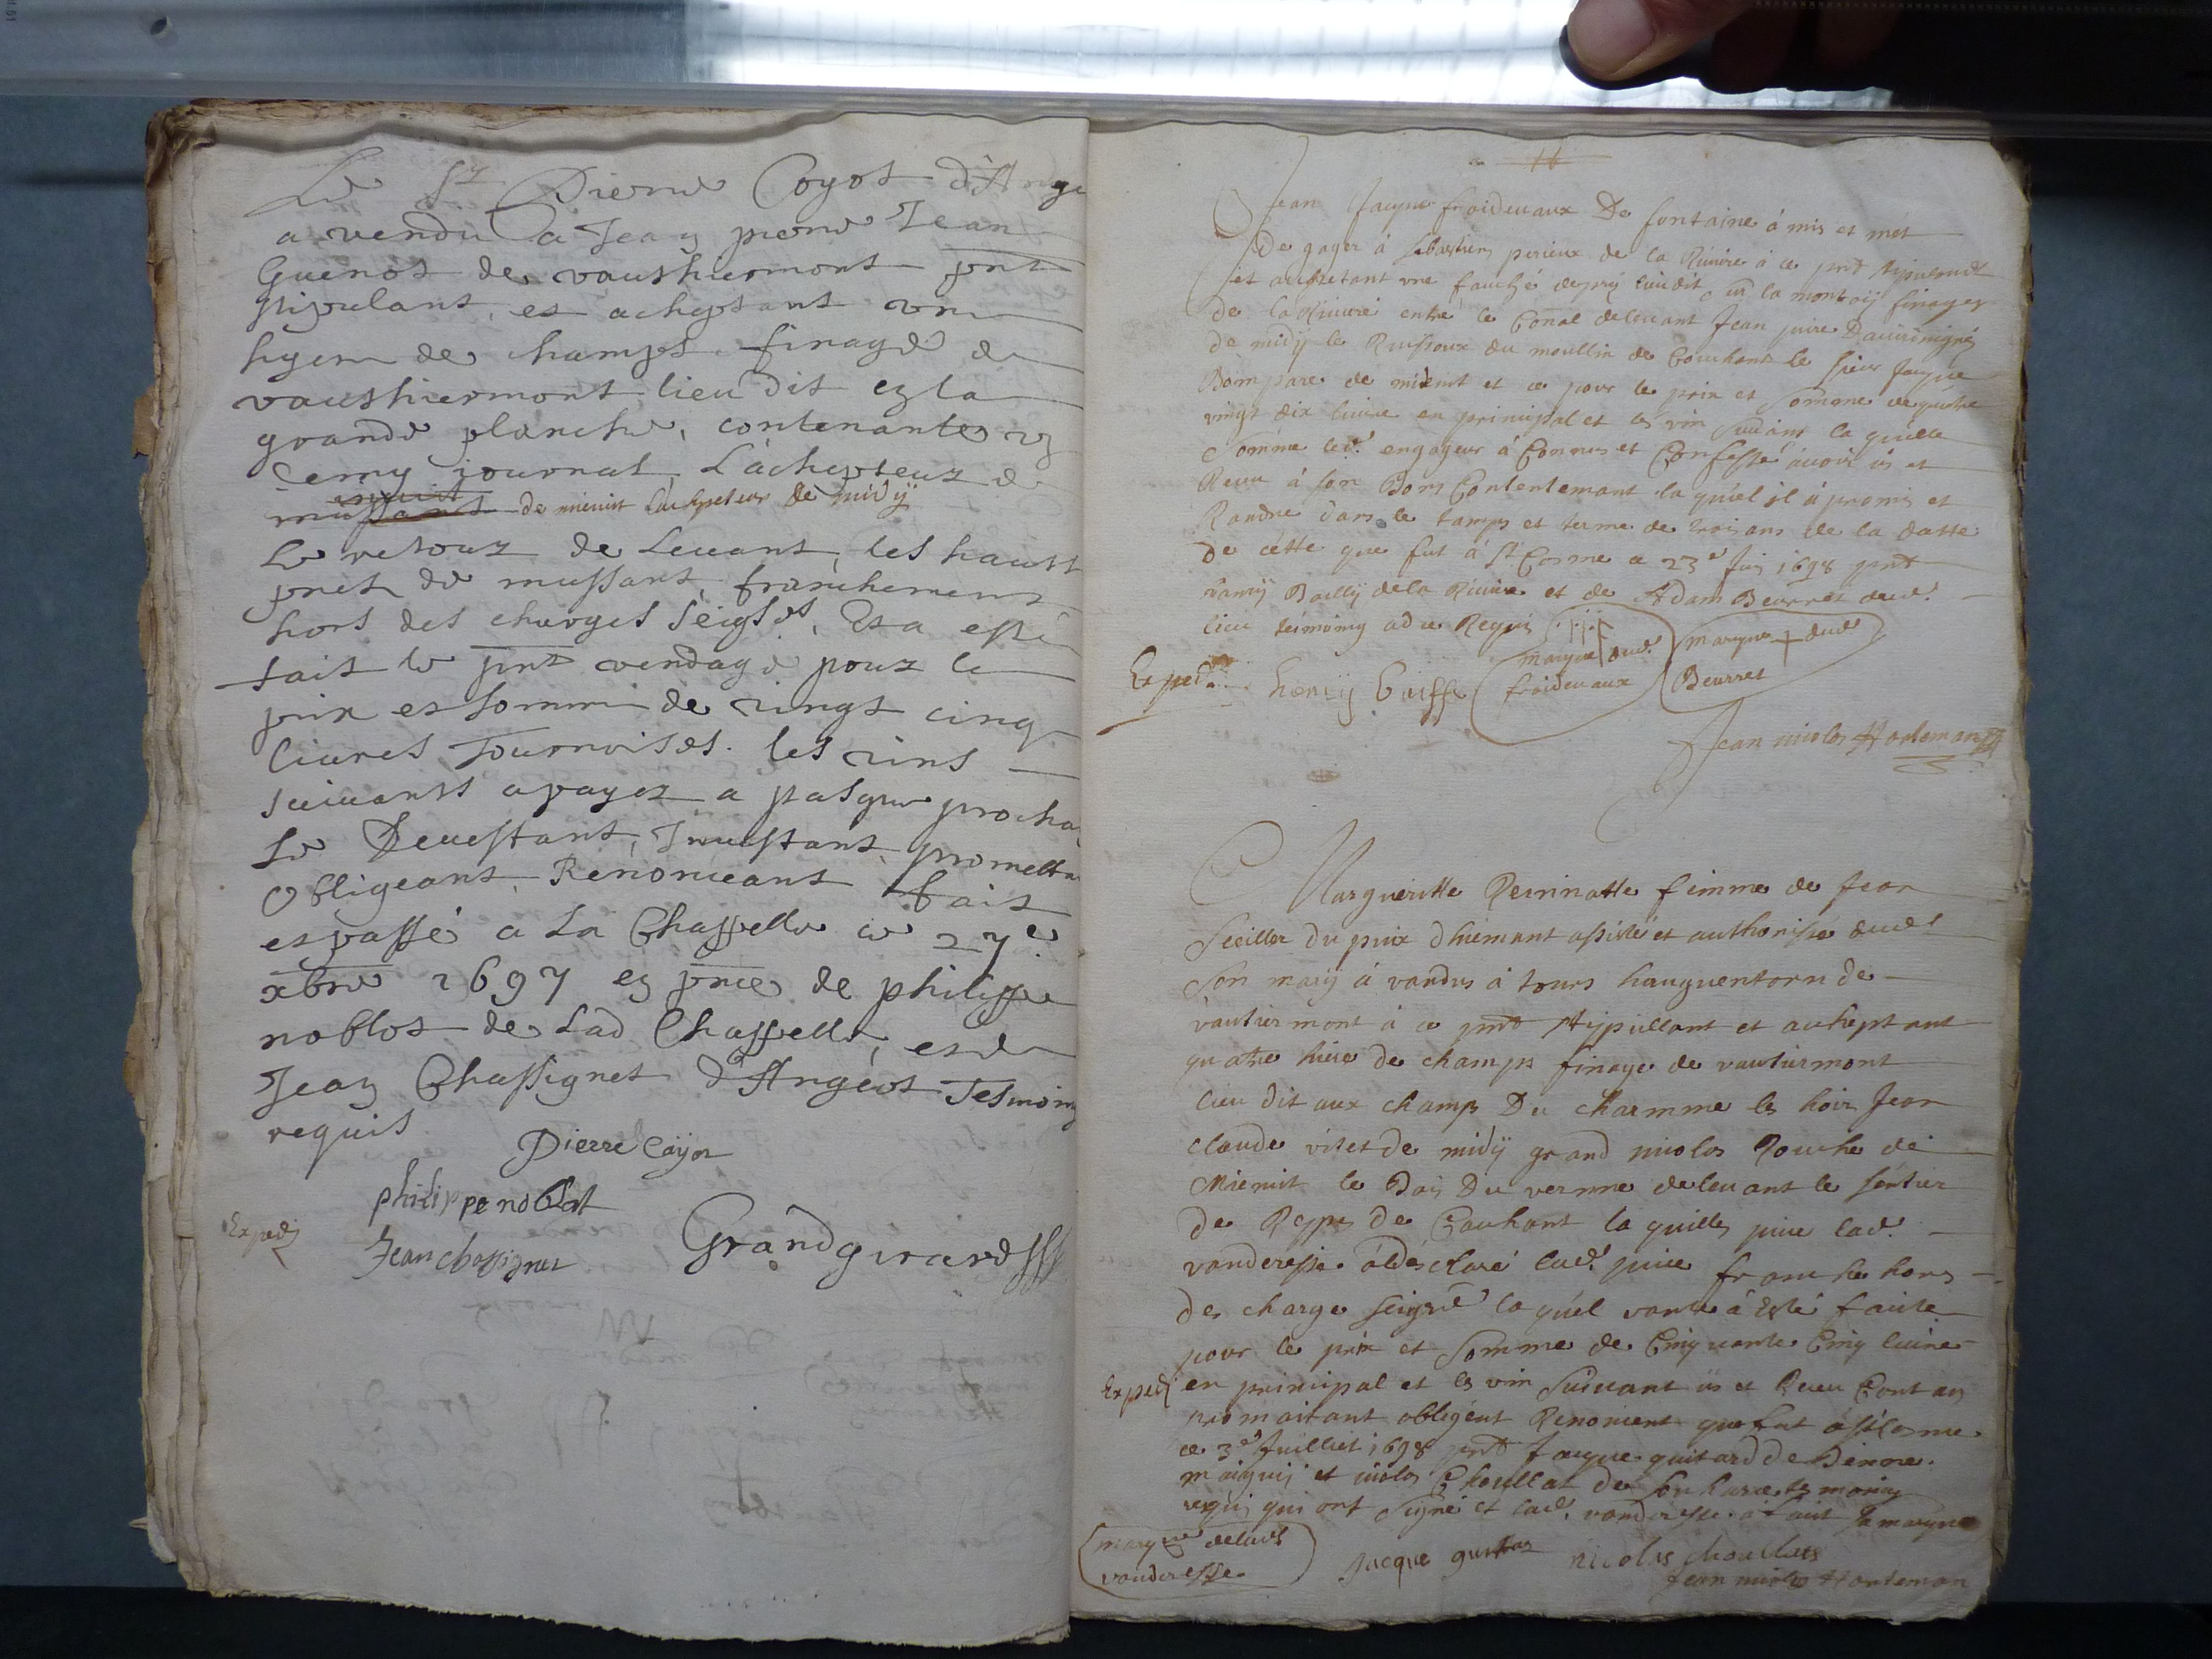 Le Sr Pierre Coyot d'Ange
a vendu a Jean pierre Jean
Guenot de vauthiermont pnt
stipulant, et acheptant une
hyere de champs finage de
vauthiermont lieu dit en la
grande planche, contenante un
demy journal, L'achepteur de
de mienuit L'achepteur de midÿ
Le retour de Levant, les hauts
prets de mussant, franchement
hors des charges seigles, Et a esté
fait le pnt vendage pour le
prix et somme de vingt cinq
livres Tournoises. les vins
suivants a payer a pasque procha
Se Devestant, Investant, promettan
Obligeant, Renonceant fait
et passé a La Chappelle ce 27e
xbre 1697 en pnce de philippe
noblot de Lad Chappelle, et de
Jean Chassignet d'Angeot Tesmoing
requis
Pierre Cayot
philippe noblat
Exped
Jean chassignet
Grandgirard
16
Jean Jaque froidevaux De fontaine à mis et met
de gager à sebastien perieux de la Riviere à ce pnt stipulant
et acheptant une fauché de prÿ lieudit la montoÿ finage
de la Riviere entre le Conal de levant Jean
de midÿ le Ruisseaux du moullin de Couchant le sieur Jaque
Bompare de mienuit et ce pour le prix et somme de quatre
vingt dix livre en principal et les vin suivant la quelle
somme led. engageur à Connus et Confessé avoir us et
Receu à son Bons Contentemant la quel il à promis et
Randre dans le tamps et terme de trois ans de la datte
de cette que fut à St Cosme ce 23e Juin 1698 pnt
hanrÿ Baillÿ de la Riviere et de Adam Beurret dud.
lieu tesmoing ad ce Requis
marque dud.
froidevaux
marque dud
Beurret
Exped.
Jean nicolas Harteman
Margueritte Perrinatte femme de Jean
Seiller du puix d'hiemant assisté et authorisse dud
son marÿ à vandus à tours hauguentorn de
vautiermont à ce pnt stypullant et acheptant
quatre hiere de champs finage de vautiermont
lieu dit aux champs Du charmme les hoirs Jean
claude vitet de midÿ grand nicolas Rouche de
Mienuit le Bois Du vernne de levant le sentier
de Reppe de Couchant la quelles piece lad.
vanderesse à desclaré lad. piece franche hors
des charge seigrie la quel vante à Esté faite
pour le prix et somme de Cinquante Cinq livre
Exped
en principal et les vin suivant us et Receu Contan
promaitant obligent Renoncent que fut à st Cosme
ce 3e Juilliet 1698 pnt Jaque guitard de Denne
et nicolas Choullat de tesmoing
requis qui ont signé et lad. vanderesse à fait sa marque
marque de lad
vanderesse
Jacque
nicolas choullat
Jean nicolas Harteman